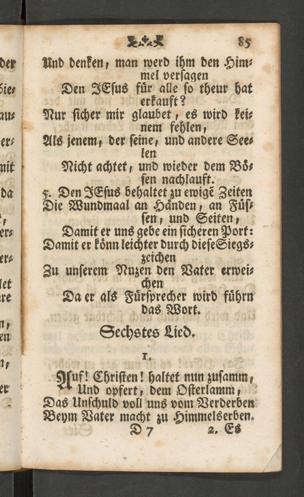 85
Und denken, man werd ihm den Him-
mel versagen
Den JEsus für alle so theur hat
erkauft?
Nur sicher mir glaubet, es wird kei-
nem fehlen,
Als jenem, der seine, und andere See-
len
Nicht achtet, und wieder dem Bö-
sen nachlauft.
5. Den JEsus behaltet zu ewigē Zeiten
Die Wundmaal an Händen, an Füs-
sen, und Seiten,
Damit er uns gebe ein sicheren Port:
Damit er könn leichter durch diese Siegs-
zeichen
Zu unserem Nuzen den Vater erwei-
chen
Da er als Fürsprecher wird führn
das Wort.
Sechstes Lied.
1.
Auf! Christen! haltet nun zusamm,
Und opfert, dem Osterlamm,
Das Unschuld voll uns vom Verderben
Beym Vater macht zu Himmelserben.
D 7 2. Es